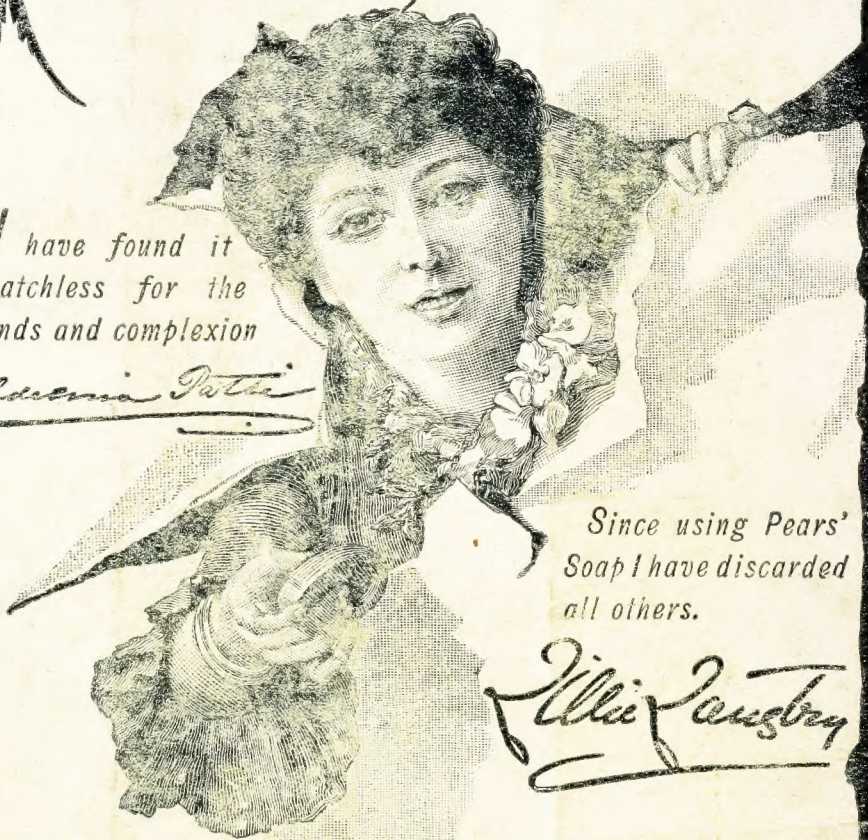 I have found it
atchless for the
nds and complexion
Patti
Since using Pears'
Soap I have discarded
all others.
Lillie Langtry